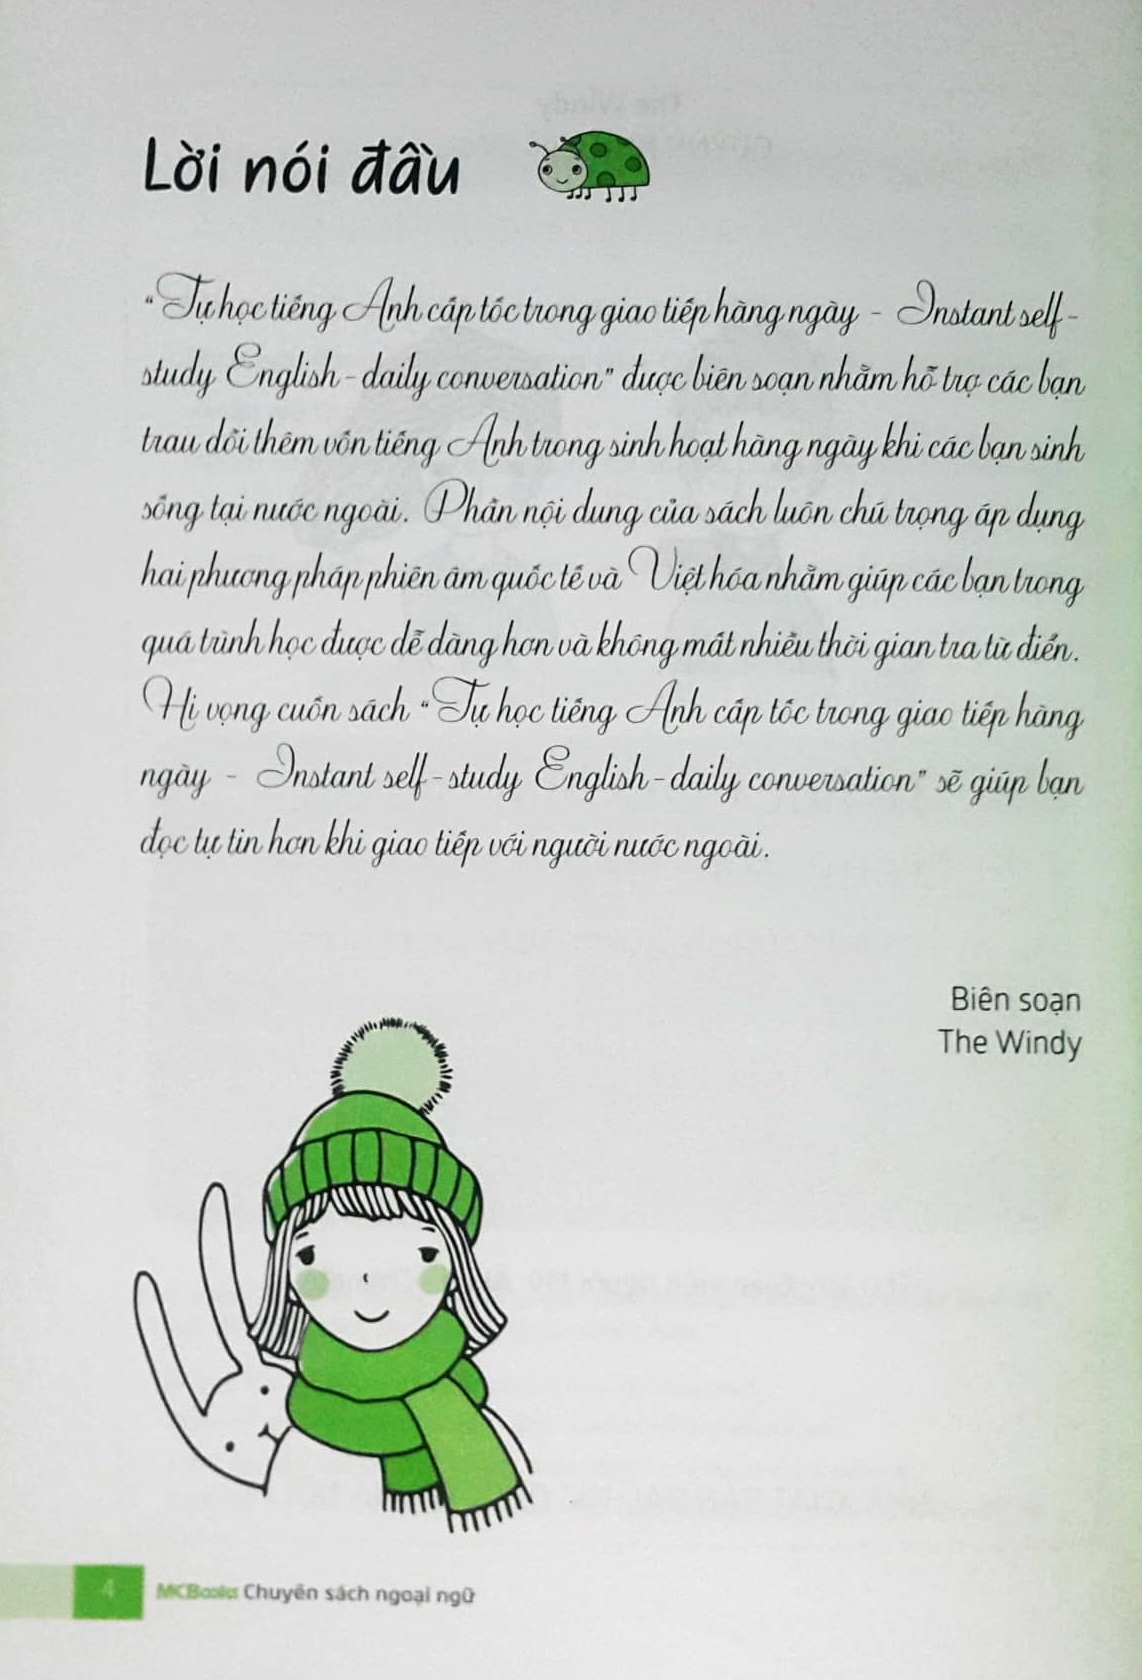 Lời nói đầu
“Tự học tiếng Anh cấp tốc trong giao tiếp hàng ngày - Instant self-
study English - daily conversation” được biên soạn nhằm hỗ trợ các bạn
trau dồi thêm vốn tiếng Anh trong sinh hoạt hàng ngày khi các bạn sinh
sống tại nước ngoài. Phần nội dung của sách luôn chú trọng áp dụng
hai phương pháp phiên âm quốc tế và Việt hóa nhằm giúp các bạn trong
quá trình học được dễ dàng hơn và không mất nhiều thời gian tra từ điển.
Hi vọng cuốn sách “Tự học tiếng Anh cấp tốc trong giao tiếp hàng
ngày - Instant self-study English - daily conversation” sẽ giúp bạn
đọc tự tin hơn khi giao tiếp với người nước ngoài.
Biên soạn
The Windy
4 MCBooks Chuyên sách ngoại ngữ